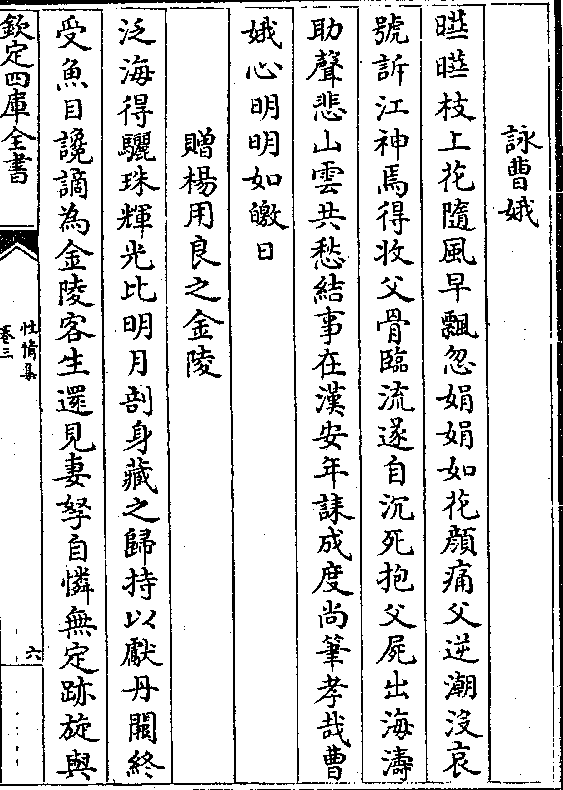 詠曹娥
曄曄枝上花隨風早飄忽娟娟如花顔痛父逆潮没哀
號訴江神焉得收父骨臨流遂自沉死抱父屍出海濤
助聲悲山雲共愁結事在漢安年誄成度尚筆孝哉曹
娥心明明如皦日
贈楊用良之金陵
泛海得驪珠輝光比明月剖身藏之歸持以獻丹闕終
受魚目讒謫為金陵客生還見妻孥自憐無定跡旋與
欽定四庫全書
性情集
卷三
六